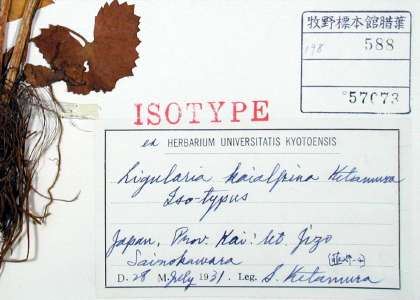 牧野標本館腊葉
198 588
57073
ISOTYPE
ex HERBARIUM UNIVERSITATIS KYOTOENSIS
Ligularia kaialpina Kitamura
Iso-typus
Japan, Prov. Kai: let. Jizo
Sainokawara
D. 28 M. July 1931. Leg. S. Kitamura